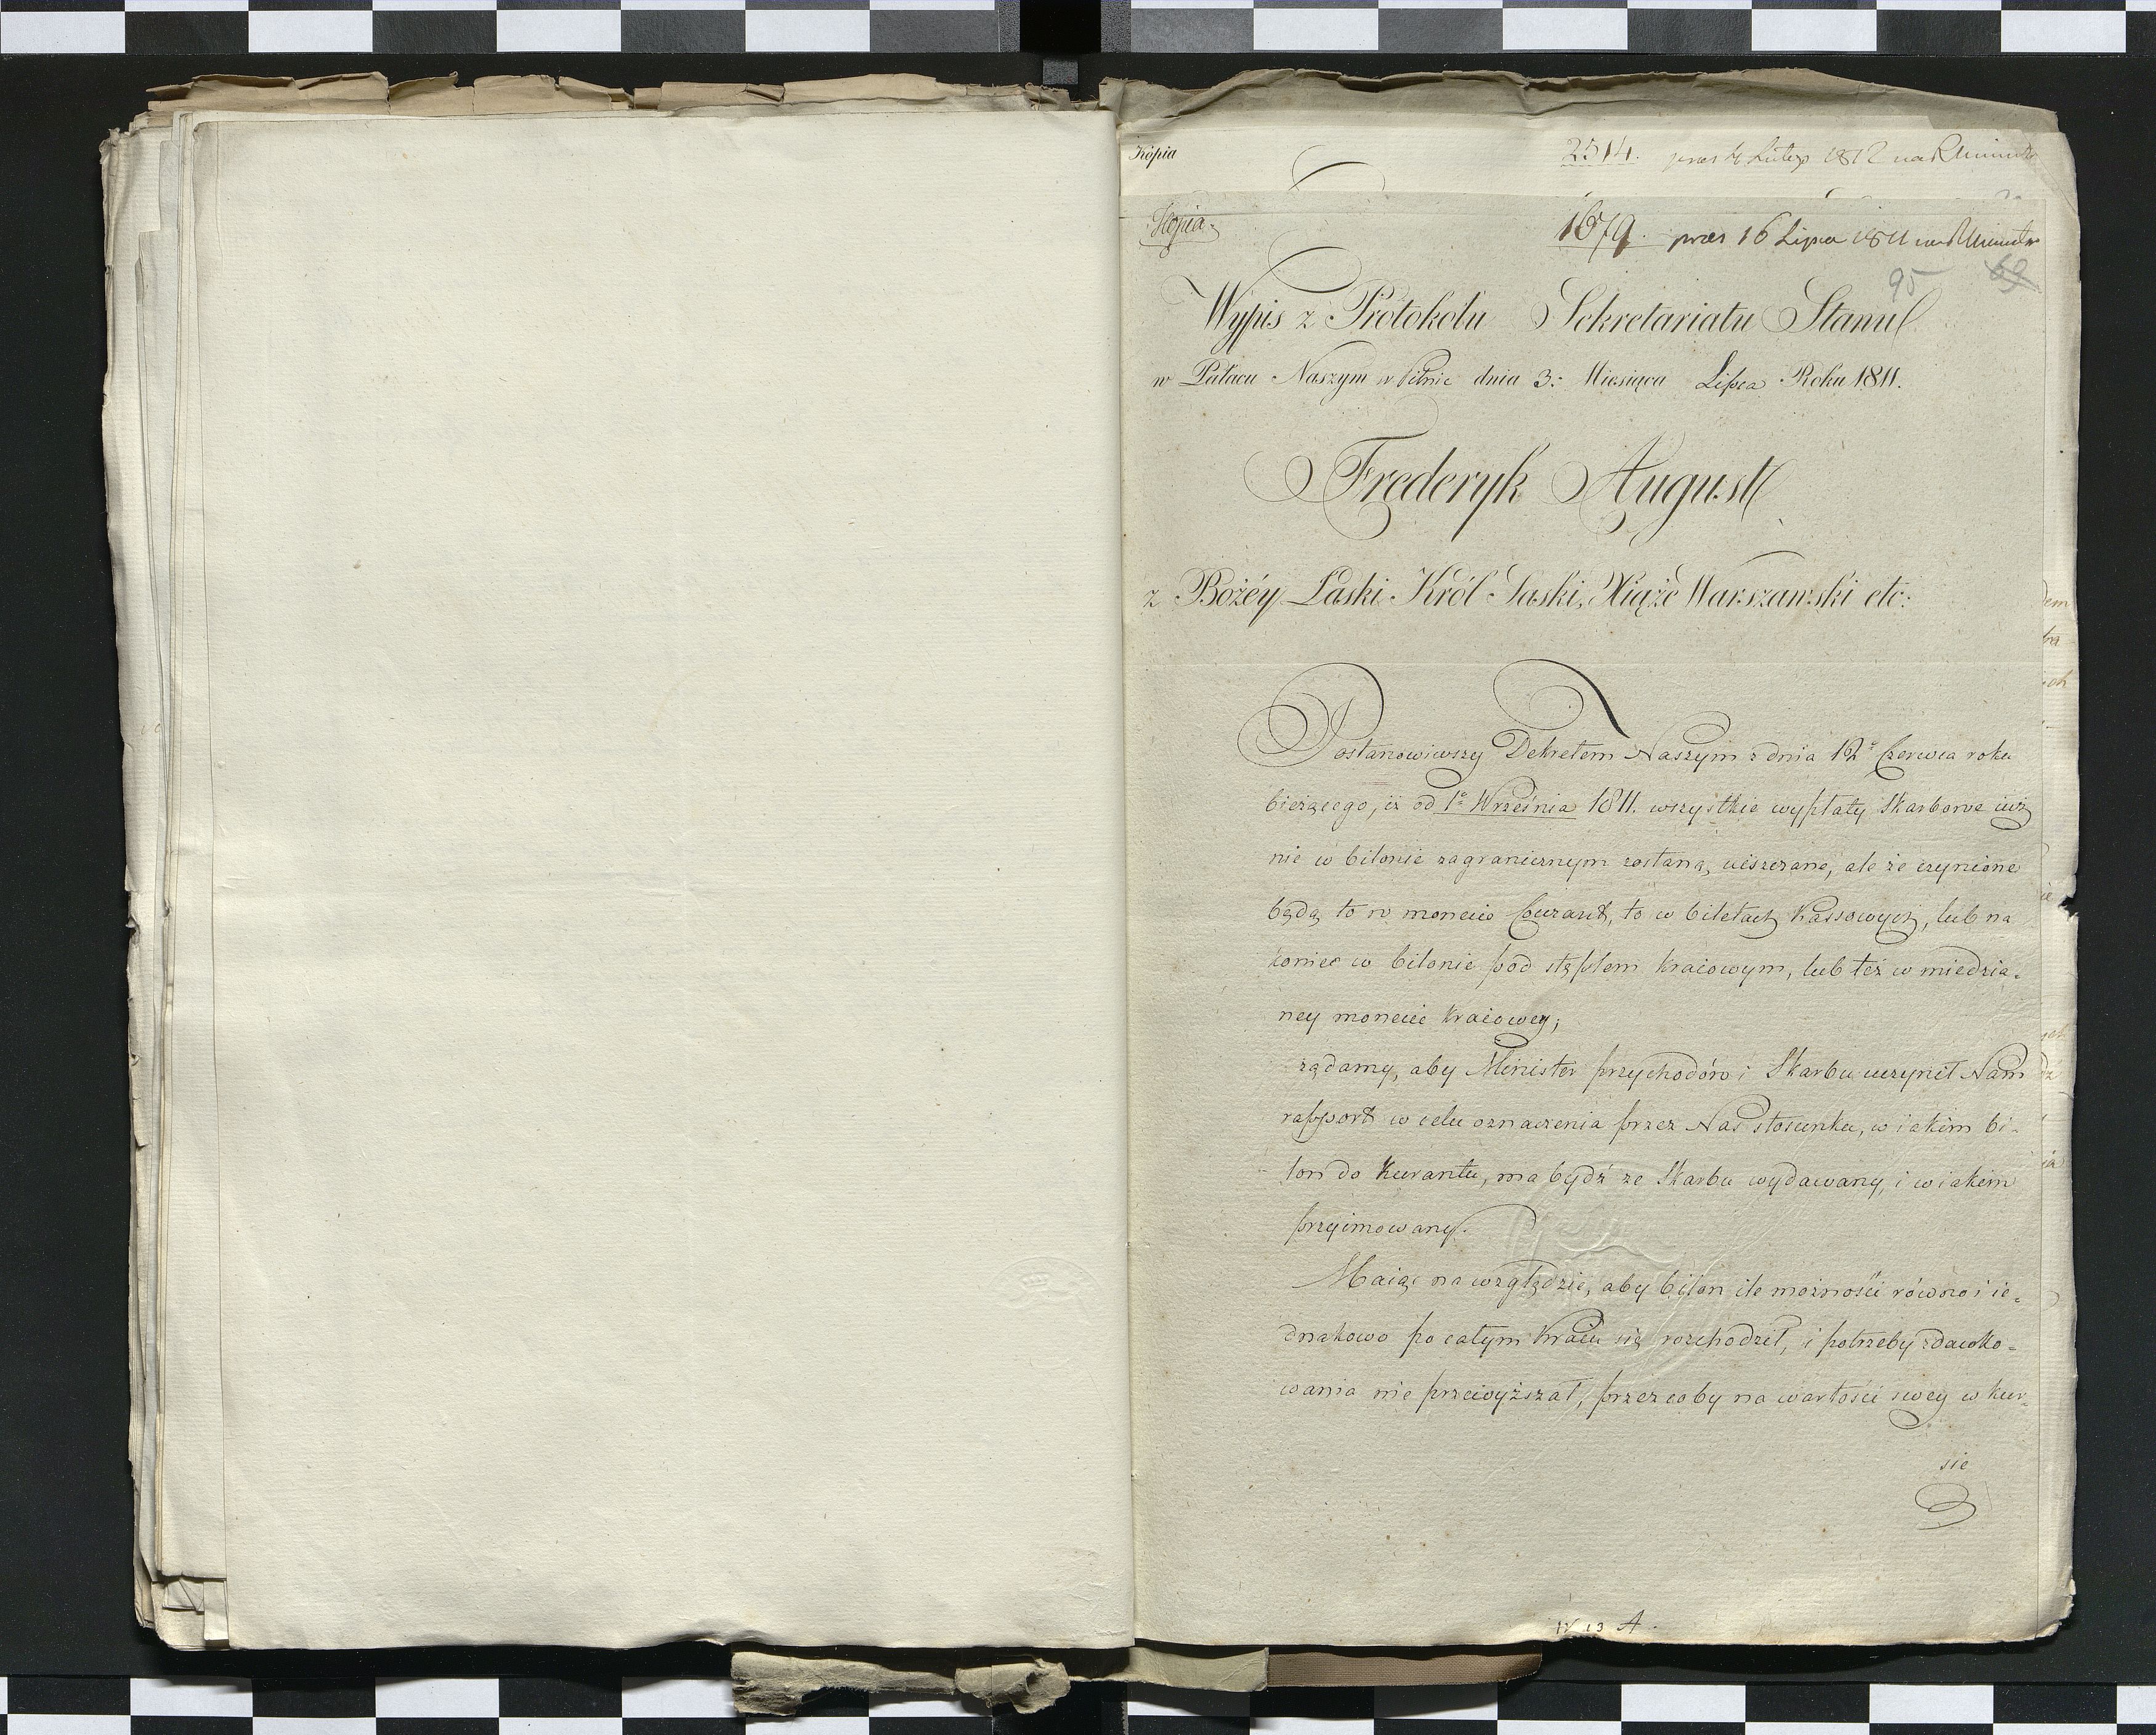 Kopia
2514. 1812
Kopia.
1679. præs 16 Lipca 1811
95 69
Wypis z Protokołu Sekretariatu Stanu
w Pałacu Naszym w Pilnic dnia 3: Miesiąca Lipca Roku 1811.
Frederyk August
z Bożéy Łaski Król Saski, Xiąże Warszawski etc:
Postanowiwszy Dekretem Naszym z dnia 12º Czerwca roku
bieżącego, iż od 1º Września 1811. wszystkie wypłaty Skarbowe iuż
nie w bilonie zagranicznym zostaną uiszczane, ale że czynione
będą to w monecie Courant, to w biletach Kassowych, lub na
koniec w bilonie pod stęplem kraiowym, lub też w miedzia-
ney monecie kraiowey;
żądamy, aby Minister przychodów i Skarbu uczynił Nam
rapport w celu oznaczenia przez Nas stosunku, w iakim bi-
lon do Kurantu, ma bydź ze Skarbu wydawany, i w iakim
przyimowany.
Maiąc na względzie, aby bilon ile możności równo i ie-
dnakowo po całym Kraiu się rozchodził, i potrzeby zdawko-
wania nie przewyższał, przez coby na wartości swey w kur-
sie